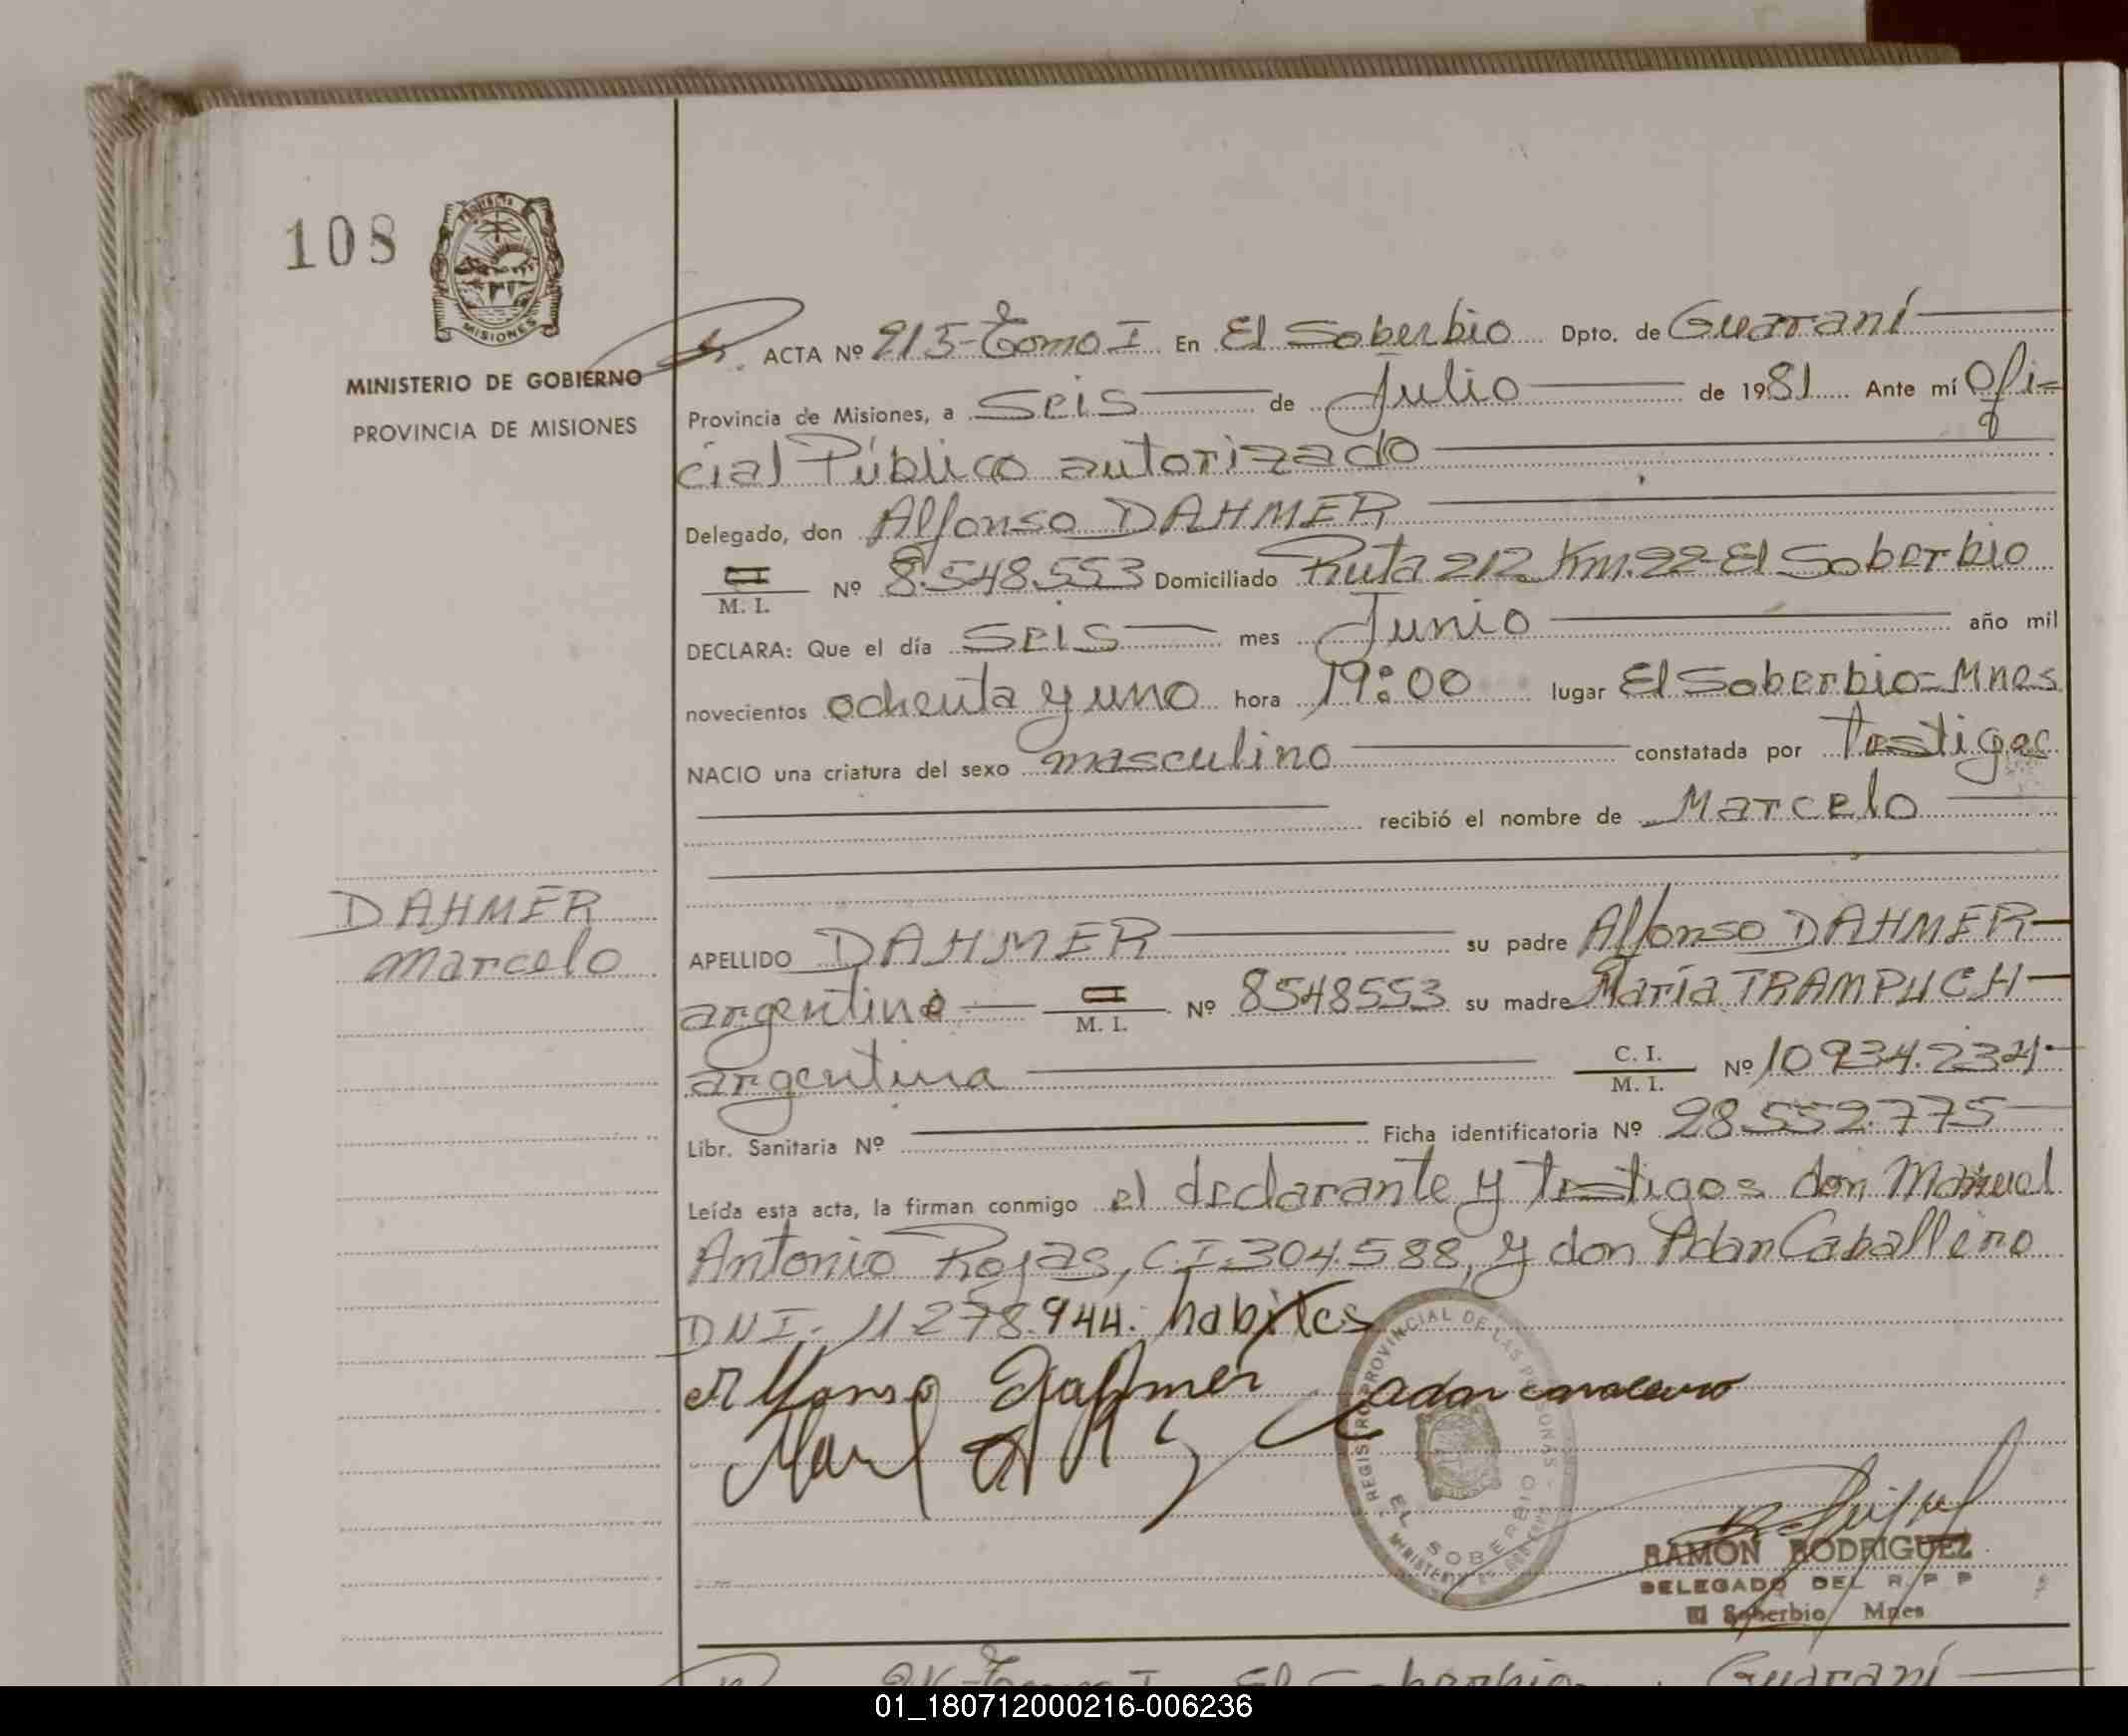 108
MISIONES
MINISTERIO DE GOBIERNO
PROVINCIA DE MISIONES
ACTA Nº 215-Tomo I En El Soberbio Dpto. de Guaraní
Provincia de Misiones, a Seis de Julio de 1981 Ante mí Ofi=
cial Público autorizado
Delegado, don Alfonso DAHMER
M. I. Nº 8.548.553 Domiciliado Ruta 212 Km.22-El Soberbio
DECLARA: Que el día Seis mes Junio año mil
novecientos ochenta y uno hora 19:00 lugar El Soberbio=Mnes
NACIO una criatura del sexo masculino constatada por Testigos
recibió el nombre de Marcelo
DAHMER
Marcelo
APELLIDO DAHMER su padre Alfonso DAHMER
argentino M. I. Nº 8548553 su madre María TRAMPUCH
argentina C. I. M. I. Nº 10934.234
Libr. Sanitaria Nº Ficha identificatoria Nº 28.552.775
Leída esta acta, la firman conmigo el declarante y testigos don Manuel
Antonio Rojas, C.I.304.588, y don Adan Caballero
DNI. 11.278.944. habiles
Alfonso Dahmer
REGISTRO PROVINCIAL DE LAS PERSONAS
EL SOBERBIO
RAMON RODRIGUEZ
DELEGADO DEL R. P. P
El Soberbio Mnes
El Soberbio Guaraní
01_180712000216-006236